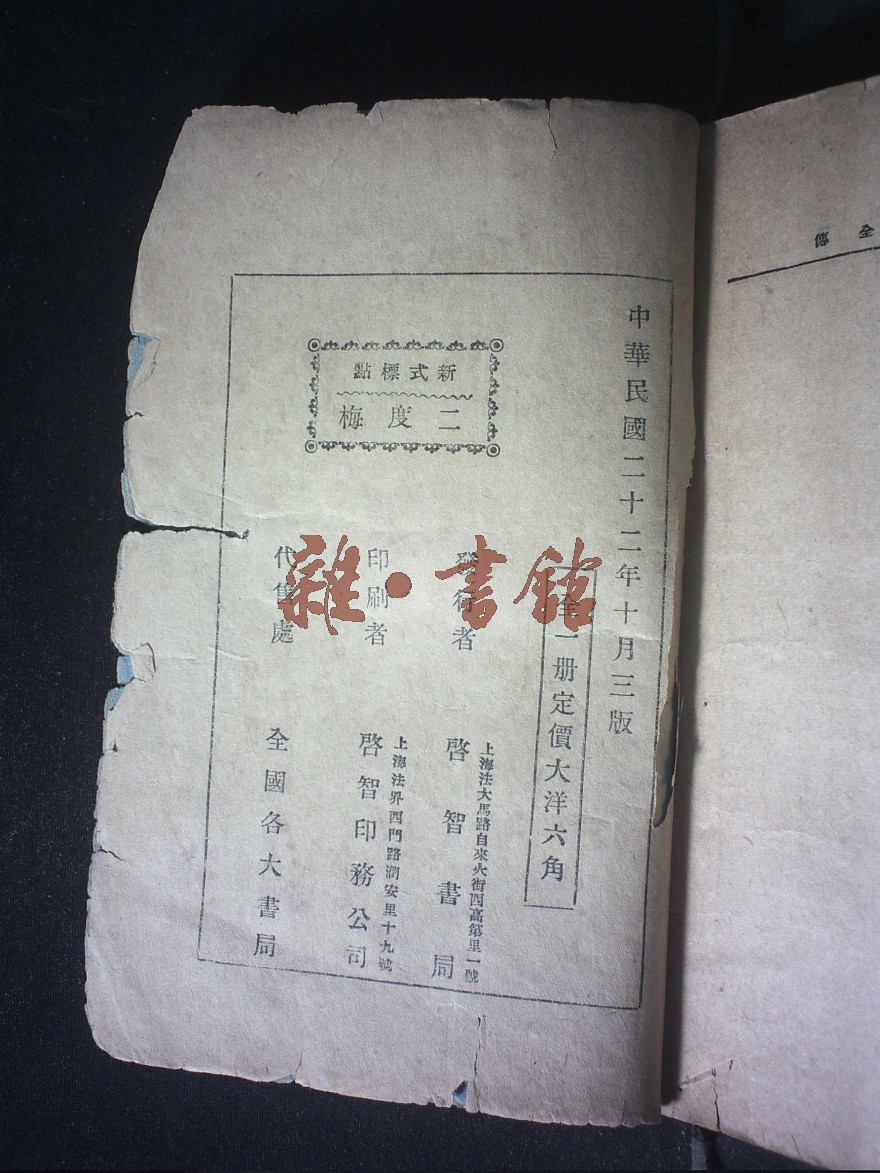 全傳
中華民國二十二年十月三版
全一册定價大洋六角
新式標點
二度梅
發行者
上海法大馬路自來火街西高第里一號
啓智書局
印刷者
上海法界西門路潤安里十九號
啓智印務公司
代售處
全國各大書局
雜·書館